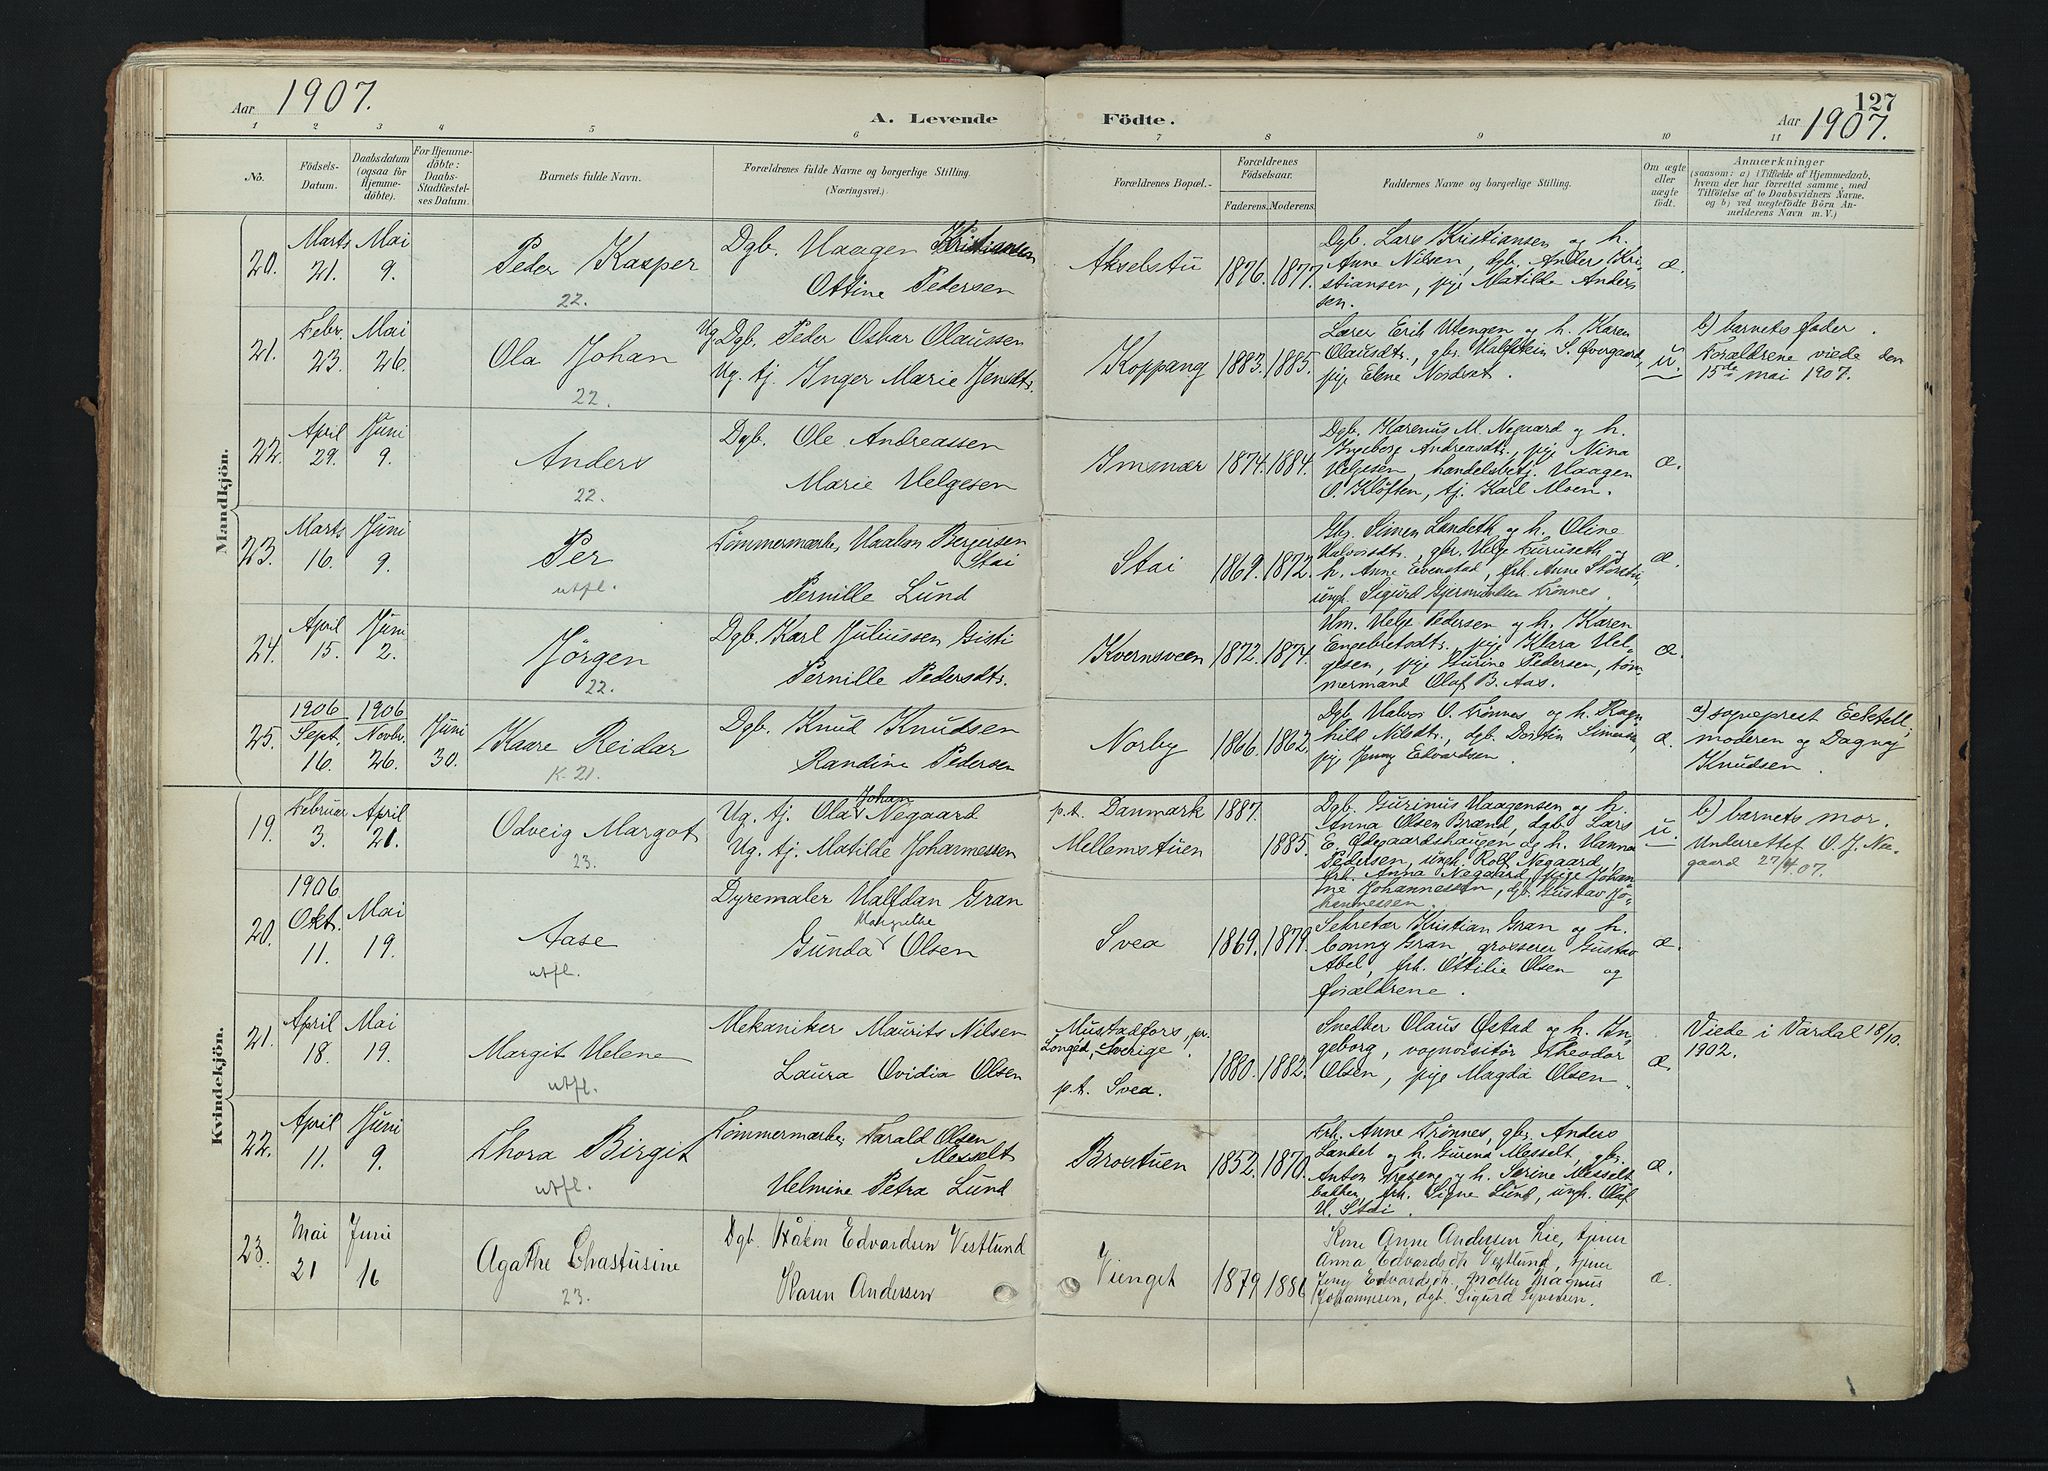 Aar 1907.
A. Levende Födte.
127
Aar 1907.
1 2 3 4 5 6 7 8 9 10 11
No.
Födsels-Datum.
Daabsdatum (ogsaa för Hjemme-döbte).
For Hjemme-döbte: Daabs-Stadfæstel-ses Datum.
Barnets fulde Navn.
Forældrenes fulde Navne og borgerlige Stilling. (Næringsvei.)
Forældrenes Bopæl.
Forældrenes Födselsaar.
Faderens. Moderens.
Faddernes Navne og borgerlige Stilling.
Om ægte eller uægte födt.
Anmærkninger
(saasom: a) i Tilfælde af Hjemmedaab, hvem der har forrettet samme, med Tilföielse af to Daabsvidners Navne. og b) ved uægtefödte Börn An-melderens Navn m. V.)
Mandkjön.
20. Marts 21. Mai 9. Peder Kasper 22.
Dgb. Haagen Kristiansen
Ottine Pedersen
Akselstu 1876. 1877.
Dgb. Lars Kristiansen og h.
Anne Nilsen, dgb. Anders Kri-
stiansen, pige Matilde Anders
sen.
æ.
21. Febr. 23. Mai 26. Ola Johan 22.
Ug. Dgb. Peder Oskar Olaussen
Ug. tj. Inger Marie Jensdtr.
Koppang 1883. 1885.
Lærer Erik Utengen og h. Karen
Olausdtr., gbr. Halfstein S. Øvergaard,
pige Elene Nordset.
u.
b) barnets fader.
Forældrene viede den
15de mai 1907.
22. April 29. Juni 9. Anders 22.
Dgb. Ole Andreassen
Marie Helgesen
Immær 1874. 1884.
Dgb. Karenus M. Negaard og h.
Ingeborg Andreasdtr., pige Nina
Helgesen, handelsbetj. Haagen
O. Kløften, tj. Karl Moen.
æ.
23. Marts 16. Juni 9. Per utfl.
Tømmermærker Haakon Bergersen
Stai
Pernille Lund
Stai 1869. 1872.
Gbr. Simen Landeth og h. Oline
Halvorsdtr., gbr. Helge Furuseth og
h. Anne Evenstad, frk. Anne Storstu,
ungk. Sigurd Gjermundsen Trønnes.
æ.
24. April 15. Juni 2. Jørgen 22.
Dgb. Karl Juliussen Gisti
Pernille Pedersdtr.
Kvernsveen 1872. 1874.
Hm. Helge Pedersen og h. Karen
Engebretsdtr., pige Klara Hel-
gesen, pige Gurine Pedersen, tøm-
mermand Olaf B. Aas.
æ.
25. 1906 Sept. 16. 1906 Novbr. 26. Juni 30. Kaare Reidar K. 21.
Dgb. Knud Knudsen
Randine Pedersen
Norby 1866. 1862.
Dgb. Halvor O. Trønnes og h. Ragn
hild Nilsdtr., dgb. Dorstin Simensen,
pige Jenny Edvardsen.
æ.
a) sogneprest Eckell,
moderen og Dagny
Knudsen.
Kvindekjön.
19. Februar 3. April 21. Odveig Margot 23.
Ug. tj. Ola Johan Negaard
Ug. tj. Matilde Johannessen
p.t. Danmark 1887.
Mellemstuen 1885.
Dgb. Gurinus Haagensen og h.
Anna Olsen Brænd, dgb. Lars
E. Ødegaardshaugen og h. Hanna
Pedersen, ungk. Rolf Negaard,
frk. Anna Negaard, pige Johan
ne Johannessen, dg. Gustav Jo-
hannessen.
u.
b) barnets mor.
Underrettet O. J. Ne-
gaard 27/4 07.
20. 1906 Okt. 11. Mai 19. Aase utfl.
Dyremaler Halfdan Gran
Gunda Margrethe Olsen
Svea 1869. 1879.
Sekretær Kristian Gran og h.
Conny Gran, grosserer Gustav
Abel, frk. Ottilie Olsen og
forældrene.
æ.
21. April 18. Mai 19. Margit Helene utfl.
Mekaniker Maurits Nilsen
Laura Ovidia Olsen
Mustadfors, pr.
Longed, Sverige,
p.t. Svea.
1880. 1882.
Snedker Olaus Østad og h. In-
geborg, vognvisitør Theodor
Olsen, pige Magda Olsen.
æ.
Viede i Vardal 18/10.
1902.
22. April 11. Juni 9. Thora Birgit utfl.
Tømmermærker Tarald Olsen
Messelt
Helmine Petra Lund
Brostuen 1852. 1870.
Frk. Anne Trønnes, gbr. Anders
Landet og h. Gurena Messelt, gbr.
Anton Tregeng og h. Serine Messelt
bakken, frk. Signe Lund, ungk. Olaf
H. Stai.
æ.
23. Mai 21 Juni 16 Agathe Chastusine 23.
Dgb. Håkon Edvardsen Vestlund
Karen Andersen
Vienget 1879 1886
Kone Anne Andersen Lie, tjener
Anna Edvardsdtr. Vestlund, tjener
Jeny Edvardsdtr., møller Magnus
Johannesen, dgb. Sigurd Syversen.
æ.